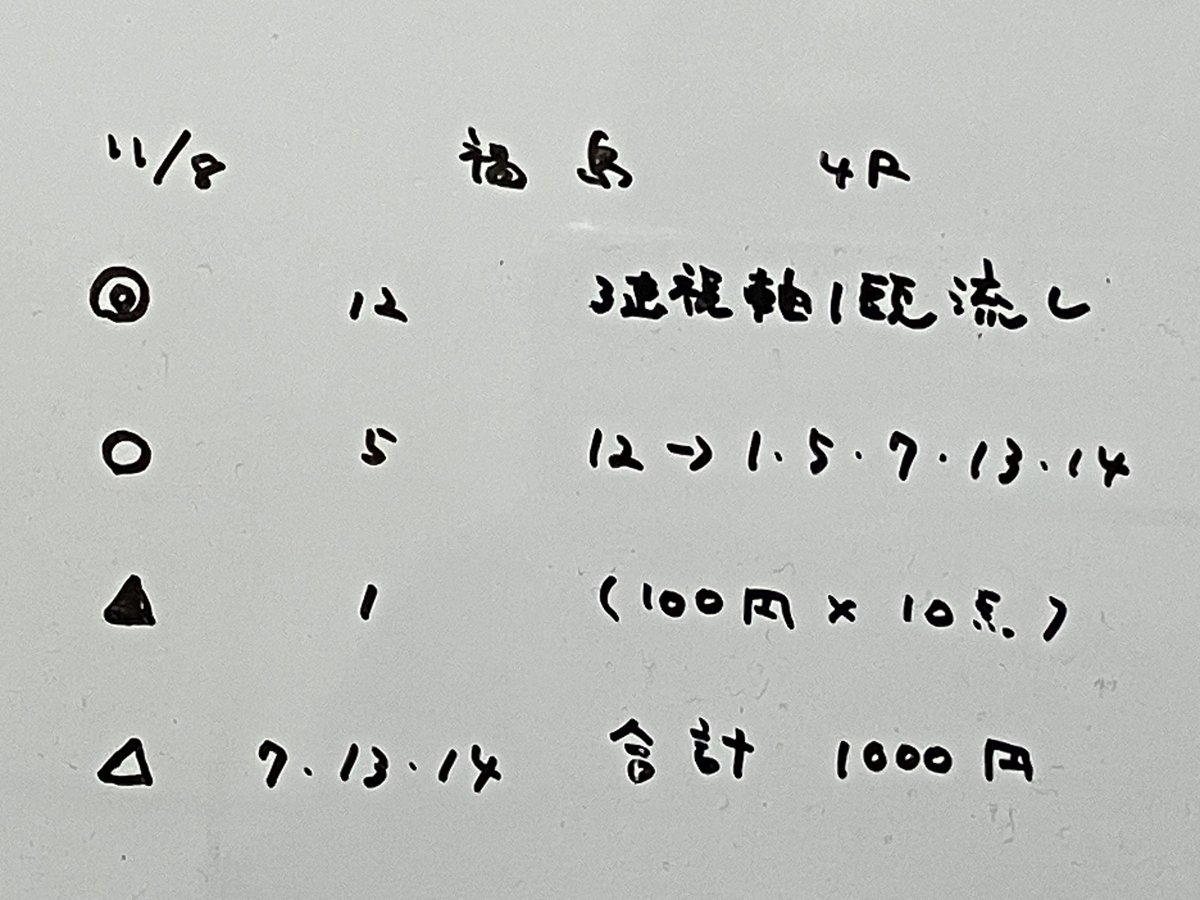 11/8 福島 4R
◎ 12 3連複軸1頭流し
○ 5 12→1・5・7・13・14
▲ 1 (100円×10点)
△ 7・13・14 合計 1000円